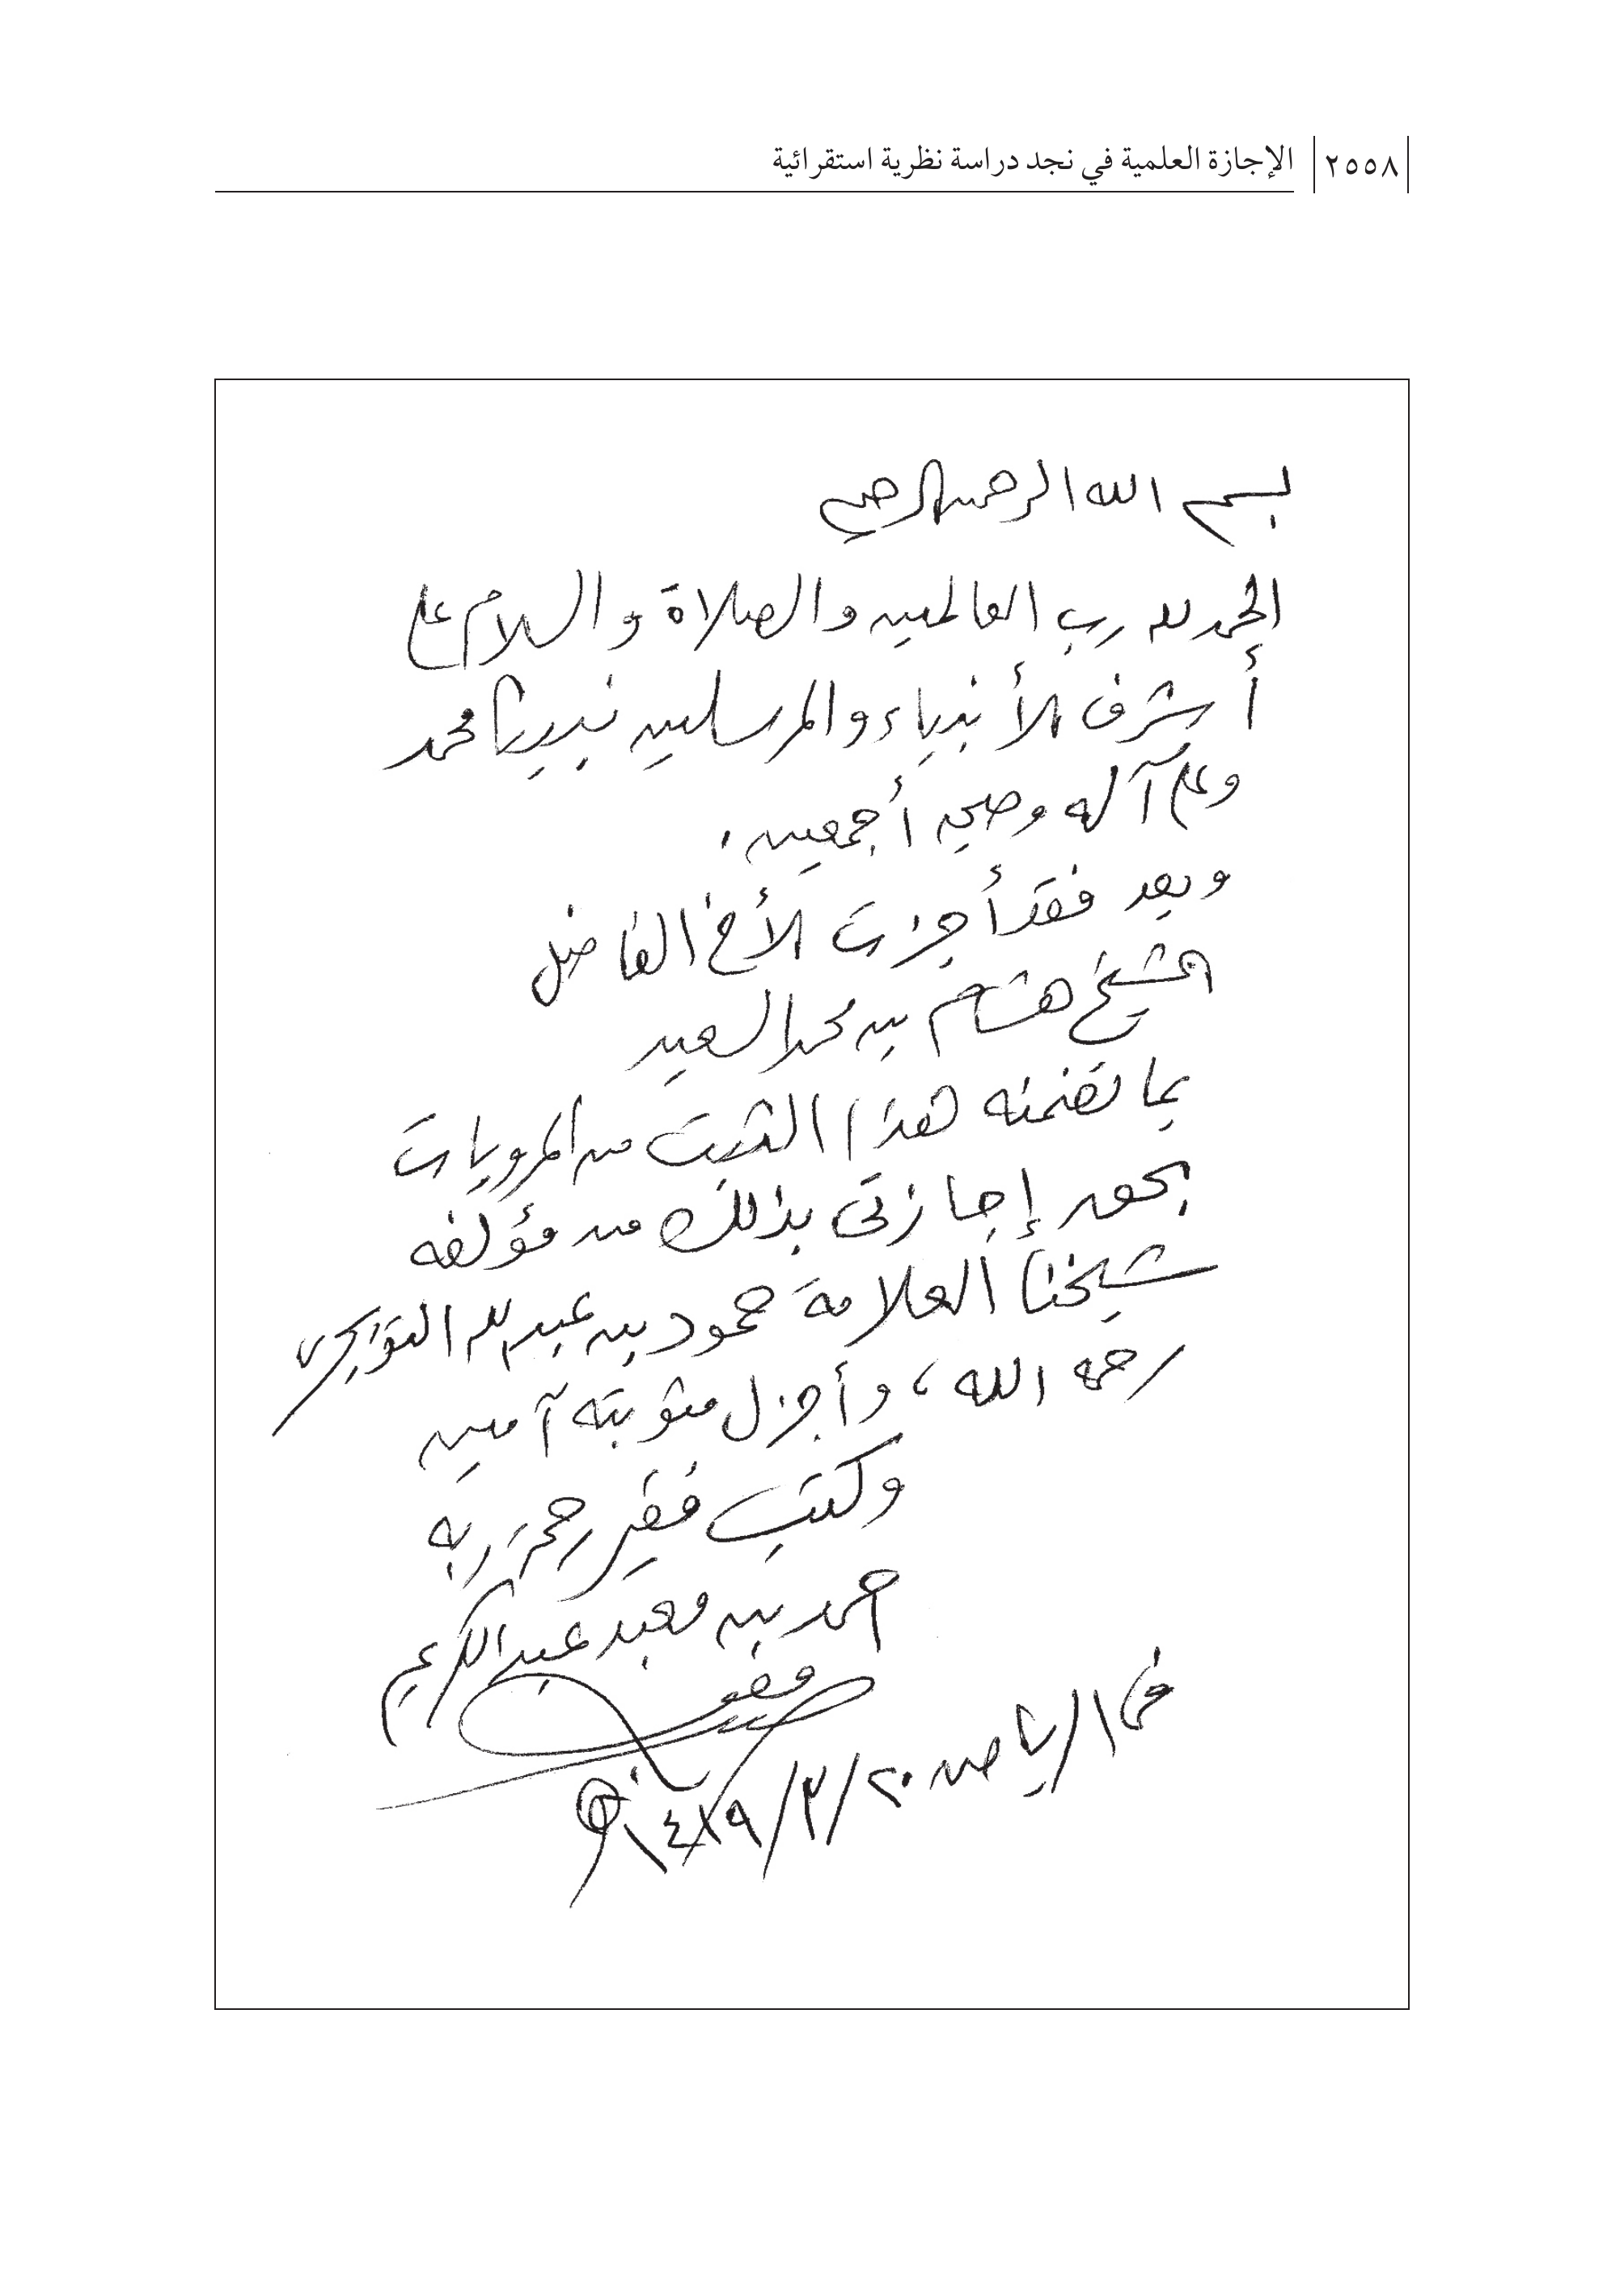 ٢٥٥٨ الإجازة العلمية في نجد دراسة نظرية استقرائية
بسم الله الرحمن الرحيم
الحمد لله رب العالمين والصلاة والسلام على
أشرف الأنبياء والمرسلين نبينا محمد
وعلى آله وصحبه أجمعين .
وبعد فقد أجزت الأخ الفاضل
الشيخ هشام بن محمد السعيد
بما تضمنه هذا الثبت من المرويات
بحق إجازتى بذلك من مؤلفه
شيخنا العلامة حمود بن عبد الله التويجرى
رحمه الله ، وأجزل مثوبته آمين
وكتب فقير رحمة ربه
احمد بن معبد عبد الكريم
فى الرياض ٢٠/٣/١٤١٩ هـ